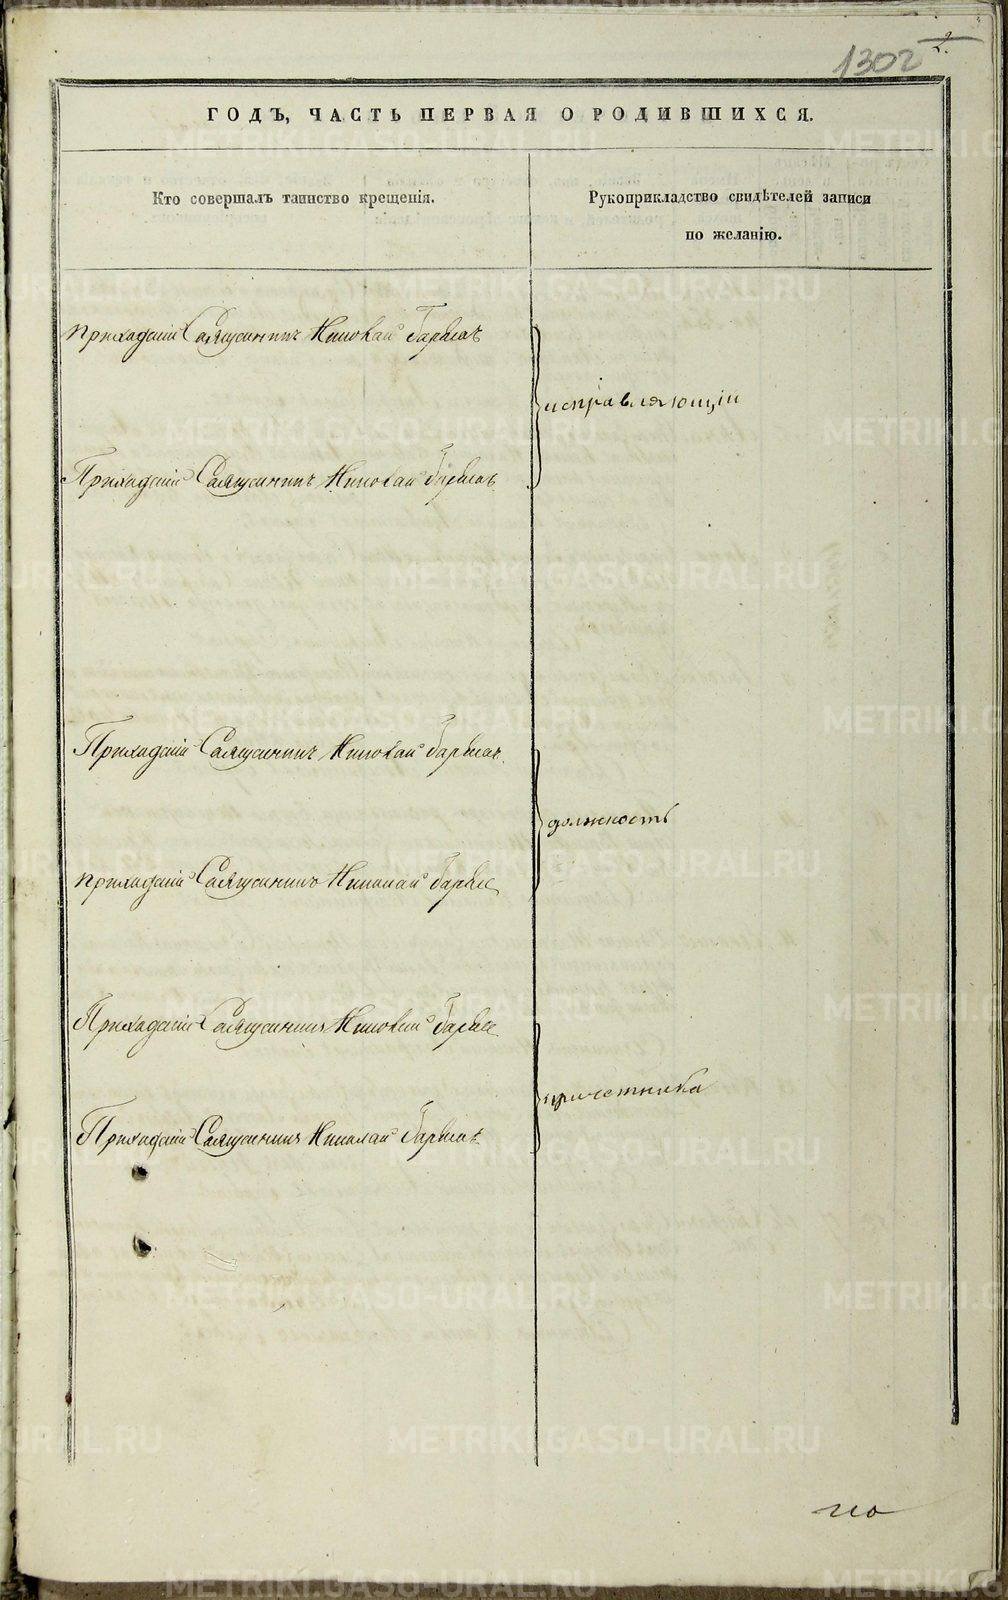 1302
2.
ГОДЪ, ЧАСТЬ ПЕРВАЯ О РОДИВШИХСЯ.
Кто совершалъ таинство крещенія.
Рукоприкладство свидѣтелей записи
по желанію.
Приходскій Священникъ Николай
исправляющій
Приходскій Священникъ Николай
Приходскій Священникъ Николай
должность
Приходскій Священникъ Николай
Приходскій Священникъ Николай
причетника
Приходскій Священникъ Николай
METRIKI.GASO-URAL.RU